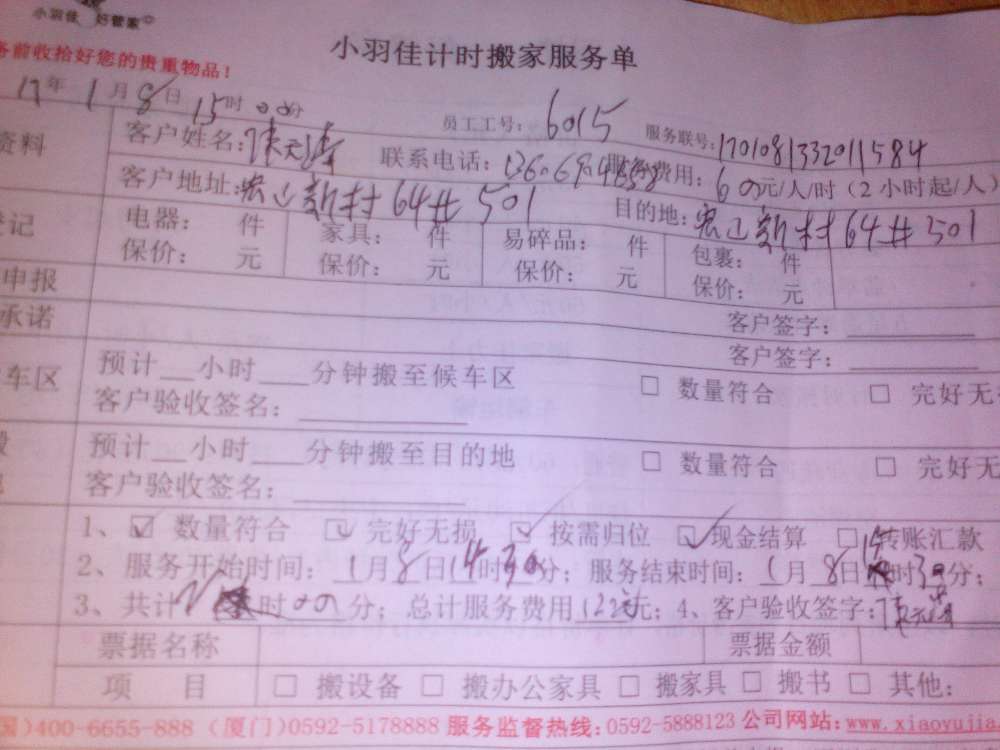 小羽佳 好管家
务前收拾好您的贵重物品!
小羽佳计时搬家服务单
17年1月8日15时00分
员工工号: 6015
服务联号: 1701081332011584
资料
客户姓名:
联系电话:
费用: 60元/人/时(2小时起/人)
客户地址: 新村64# 501
目的地: 新村64# 501
登记
电器: 件 家具: 件 易碎品: 件 包裹: 件
保价: 元 保价: 元 保价: 元 保价: 元
申报
客户签字:
承诺
客户签字:
车区
预计__小时___分钟搬至候车区 □ 数量符合 □ 完好无
客户验收签名:
预计__小时___分钟搬至目的地 □ 数量符合 □ 完好无
客户验收签名:
1、☑ 数量符合 ☑ 完好无损 ☑ 按需归位 ☑ 现金结算 □ 转账汇款
2、服务开始时间: 1月8日14时30分; 服务结束时间: 1月8日 时30分;
3、共计 时00分; 总计服务费用 元; 4、客户验收签字:
票据名称 票据金额
项 目 □ 搬设备 □ 搬办公家具 □ 搬家具 □ 搬书 □ 其他:
国)400-6655-888 (厦门)0592-5178888 服务监督热线:0592-5888123 公司网站:www.xiaoyujia